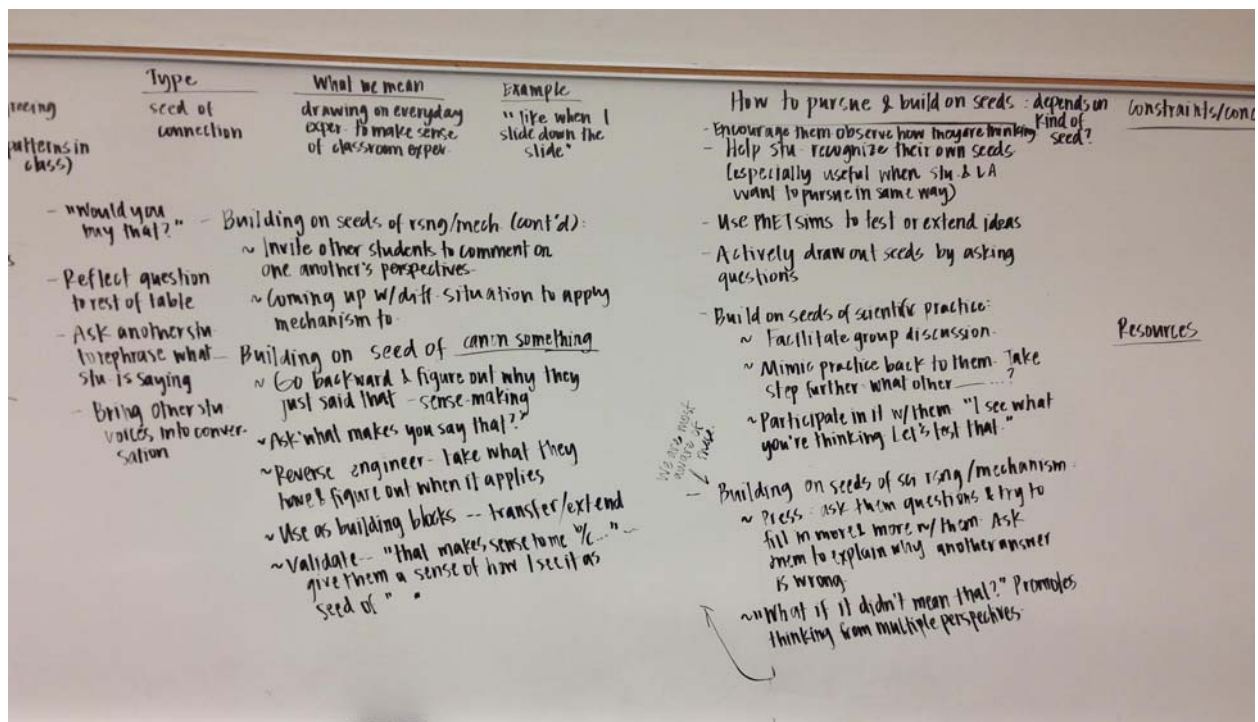 Type
seed of
connection
What we mean
drawing on everyday
exper. to make sense
of classroom exper.
Example
"like when I
slide down the
slide"
patterns in
class)
- "Would you
buy that?"
- Reflect question
to rest of table
- Ask another stu.
to rephrase what
stu. is saying
- Bring other stu.
voices into conver-
sation
- Building on seeds of rsng/mech. (cont'd):
~ Invite other students to comment on
one another's perspectives.
~ Coming up w/ diff. situation to apply
mechanism to.
- Building on seed of canon something
~ Go backward & figure out why they
just said that - sense-making
~ Ask "what makes you say that?"
~ Reverse engineer - take what they
have & figure out when it applies
~ Use as building blocks -- transfer/extend
~ Validate -- "that makes sense to me b/c ..." --
give them a sense of how I see it as
seed of " "
How to pursue & build on seeds : depends on
kind of
seed?
- Encourage them observe how they are thinking
- Help stu. recognize their own seeds
(especially useful when stu. & LA
want to pursue in same way)
- Use PhET sims to test or extend ideas
- Actively draw out seeds by asking
questions
- Build on seeds of scientific practice:
~ Facilitate group discussion.
~ Mimic practice back to them. Take
step further. what other ___...?
~ Participate in it w/ them "I see what
you're thinking Let's test that."
We are most
aware of
these.
- Building on seeds of sci rsng/mechanism:
~ Press : ask them questions & try to
fill in more & more w/ them. Ask
them to explain why another answer
is wrong.
~ "What if it didn't mean that?" Promotes
thinking from multiple perspectives.
Constraints/conc
Resources